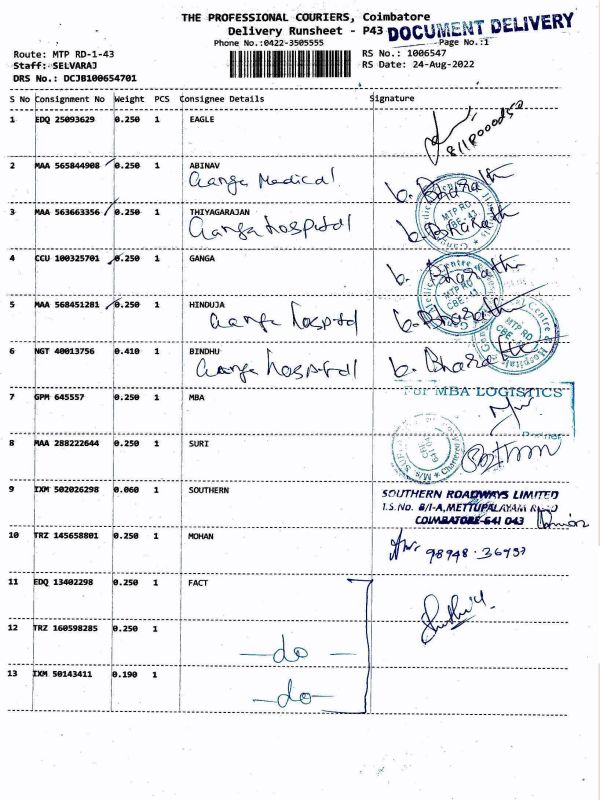 THE PROFESSIONAL COURIERS, Coimbatore
Delivery Runsheet - P43
DOCUMENT DELIVERY
Phone No.:0422-3505555
Page No.:1
Route: MTP RD-1-43
RS No.: 1006547
Staff: SELVARAJ
RS Date: 24-Aug-2022
DRS No.: DCJB100654701
S No Consignment No Weight PCS Consignee Details Signature
1 EDQ 25093629 0.250 1 EAGLE
2 MAA 565844908 0.250 1 ABINAV
Ganga Medical b. Bharath
3 MAA 563663356 0.250 1 THIYAGARAJAN
Ganga hospital b. Bharath
MTP RD
CBE - 43
4 CCU 100325701 0.250 1 GANGA
b. Bharath
MTP RD
CBE
5 MAA 568451281 0.250 1 HINDUJA
Ganga hospital b. Bharath
MTP RD
CBE
6 NGT 40013756 0.410 1 BINDHU
Ganga hospital b. Bharath
7 GPM 645557 0.250 1 MBA
For MBA LOGISTICS
Partner
8 MAA 288222644 0.250 1 SURI
9 IXM 502026298 0.060 1 SOUTHERN
SOUTHERN ROADWAYS LIMITED
T.S.No. 8/1-A, METTUPALAYAM ROAD
COIMBATORE-641 043
10 TRZ 145658801 0.250 1 MOHAN
11 EDQ 13402298 0.250 1 FACT
12 TRZ 160598285 0.250 1
- do -
13 IXM 50143411 0.190 1
- do -